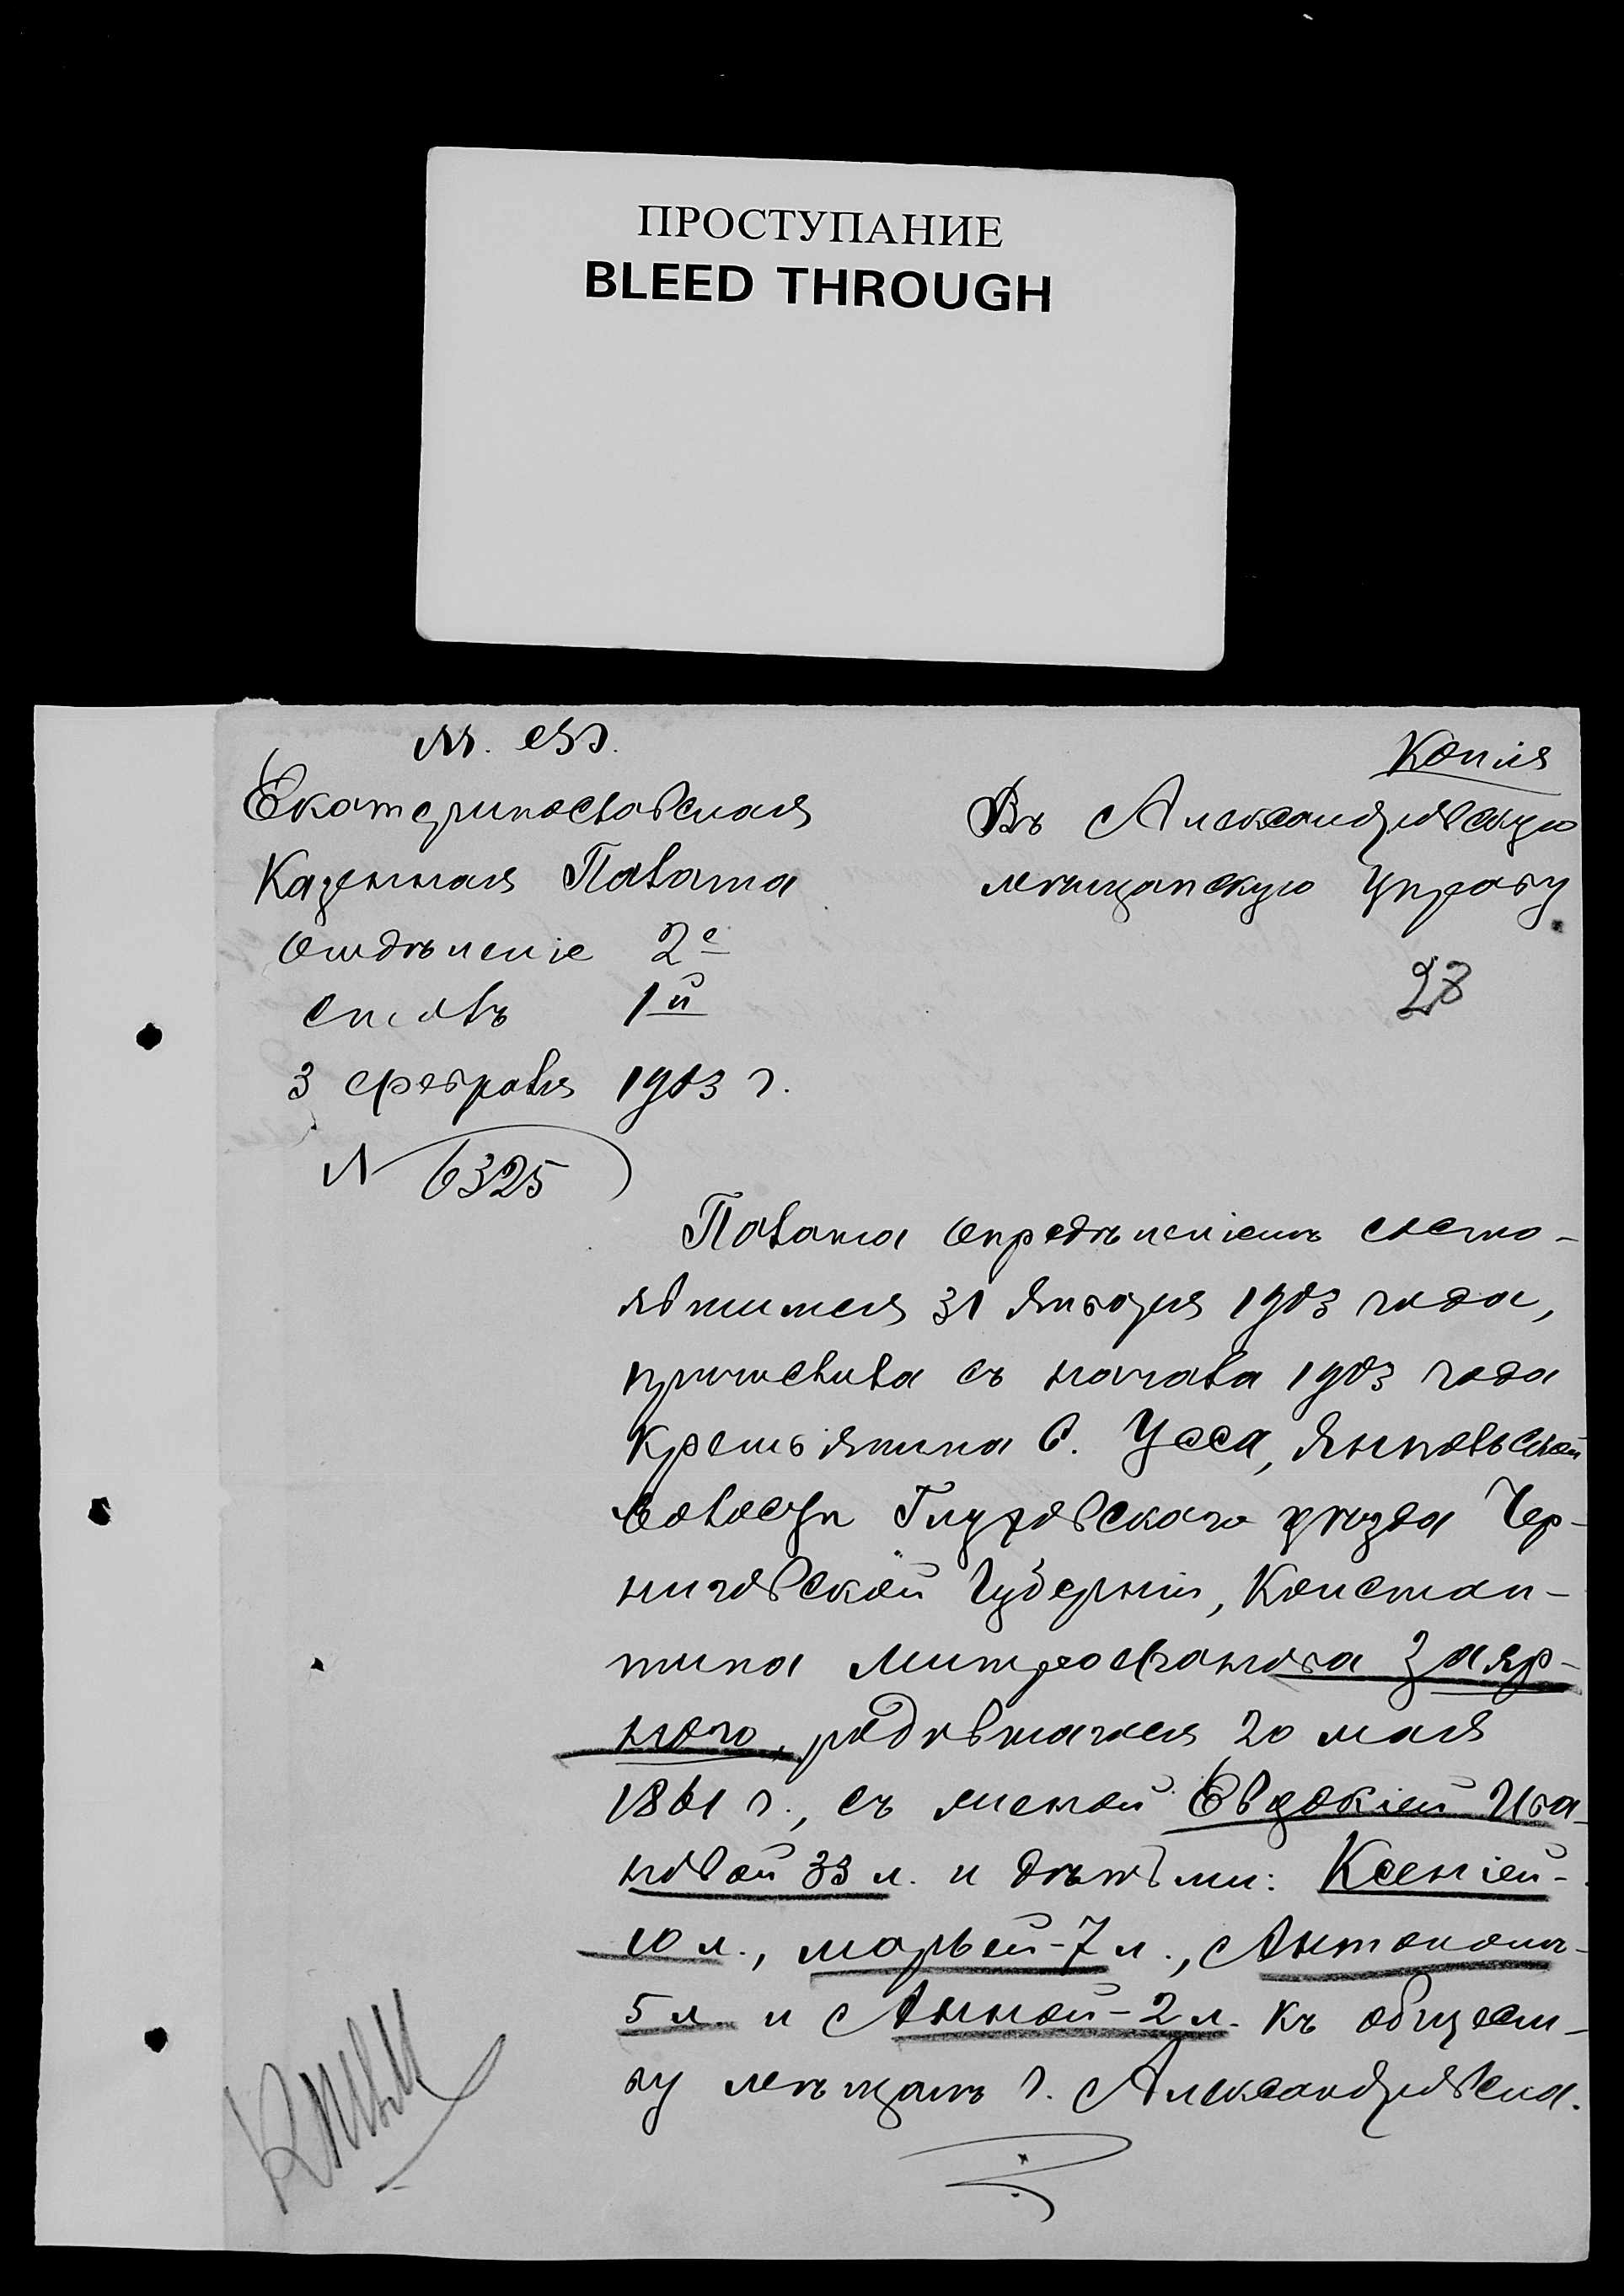 ПРОСТУПАНИЕ
BLEED THROUGH
М. В. Д.
Копія
Екатеринославская
Казенная Палата
Отдѣленіе 2е
Столъ 1й
3 февраля 1903 г.
N 6325
Въ Александровскую
мѣщанскую Управу
28
Палата опредѣленіемъ состо-
явшимся 31 Января 1903 года,
причислила съ начала 1903 года
крестьянина С. Усса, Янпольской
волости Глуховскаго уѣзда Чер-
ниговской Губерніи, Констан-
тина Митрофанова Заяр-
ного, родившагося 20 мая
1861 г., съ женой Евдокіей Ива-
новой 33 л. и дѣтьми: Ксеніей-
10 л., Марьей-7 л., Антономъ-
5 л. и Анной-2 л. къ общест-
ву мѣщанъ г. Александровска.